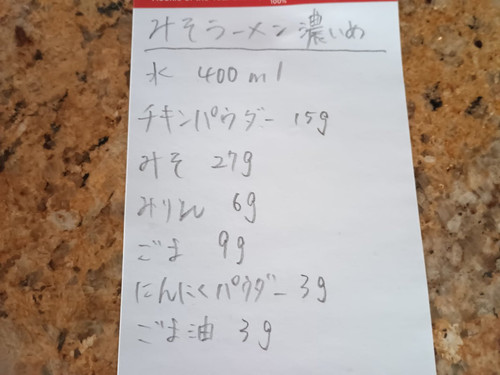 みそラーメン 濃いめ
水 400ml
チキンパウダー 15g
みそ 27g
みりん 6g
ごま 9g
にんにくパウダー 3g
ごま油 3g